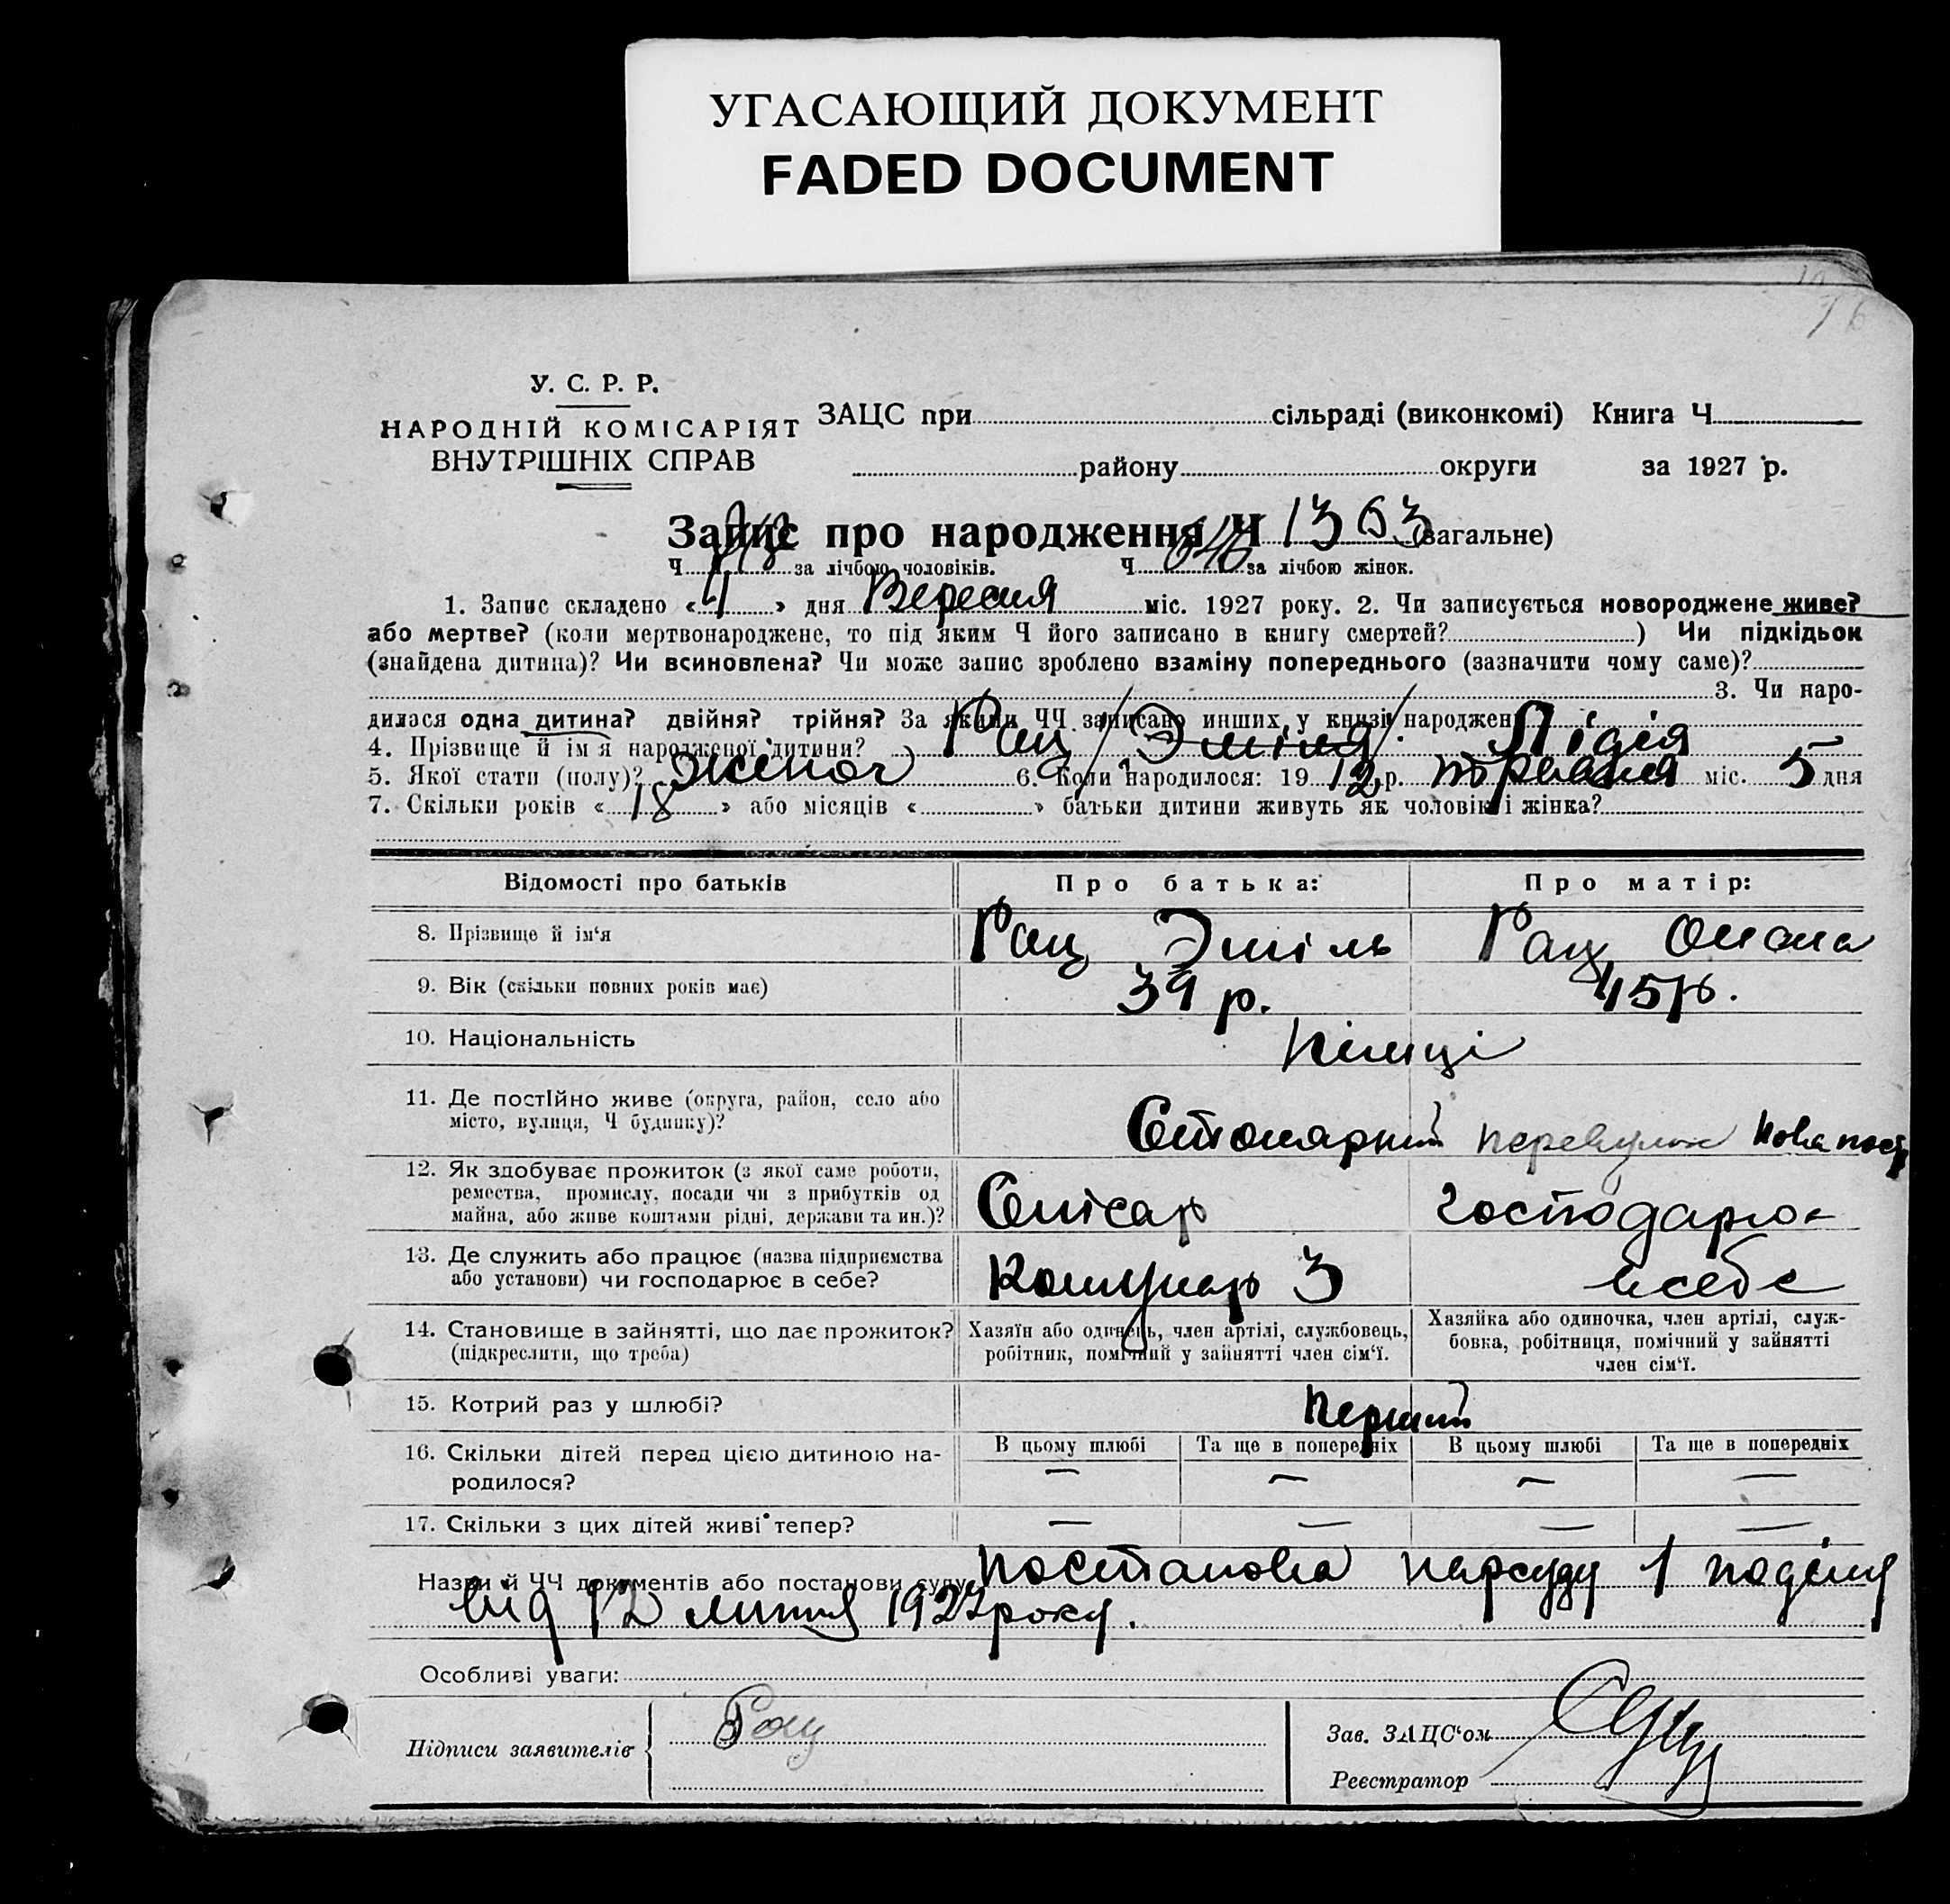 УГАСАЮЩИЙ ДОКУМЕНТ
FADED DOCUMENT
76
У. С. Р. Р.
НАРОДНІЙ КОМІСАРІЯТ
ВНУТРІШНІХ СПРАВ
ЗАЦС при сільраді (виконкомі) Книга Ч
району округи за 1927 р.
Запис про народження Ч 1363 (загальне)
Ч за лічбою чоловіків. Ч 646 за лічбою жінок.
1. Запис складено « » дня Вересня міс. 1927 року. 2. Чи записується новороджене живе?
або мертве? (коли мертвонароджене, то під яким Ч його записано в книгу смертей? ) Чи підкідьок
(знайдена дитина)? Чи всиновлена? Чи може запис зроблено взаміну попереднього (зазначити чому саме)?
3. Чи наро-
дилася одна дитина? двійня? трійня? За якими ЧЧ записано инших у книзі народжень
4. Прізвище й ім'я народженої дитини? Рац /Эміля/. Лідія
5. Якої стати (полу)? жіноч 6. Коли народилося: 1912 р. травня міс. 5 дня
7. Скільки років « 18 » або місяців « » батьки дитини живуть як чоловік і жінка?
Відомості про батьків Про батька: Про матір:
8. Прізвище й ім'я Рац Эміль Рац
9. Вік (скільки повних років має) 39 р. 45 р.
10. Національність Німці
11. Де постійно живе (округа, район, село або
місто, вулиця, Ч будинку)? Столярний перевулок Нова
12. Як здобуває прожиток (з якої саме роботи,
ремества, промислу, посади чи з прибутків од
майна, або живе коштами рідні, держави та ин.)? господарює
13. Де служить або працює (назва підприємства
або установи) чи господарює в себе? 3 в себе
14. Становище в зайнятті, що дає прожиток?
(підкреслити, що треба)
Хазяїн або одинець, член артілі, службовець,
робітник, помічний у зайнятті член сім'ї.
Хазяйка або одиночка, член артілі, служ-
бовка, робітниця, помічний у зайнятті
член сім'ї.
15. Котрий раз у шлюбі? Перший
16. Скільки дітей перед цією дитиною на-
родилося?
В цьому шлюбі Та ще в попередніх В цьому шлюбі Та ще в попередніх
— — — —
17. Скільки з цих дітей живі тепер? — — — —
Назви й ЧЧ документів або постанови суду постанова нарсуду 1
від 12 липня 1927 року.
Особливі уваги:
Підписи заявителів Рац
Зав. ЗАЦС'ом
Реєстратор